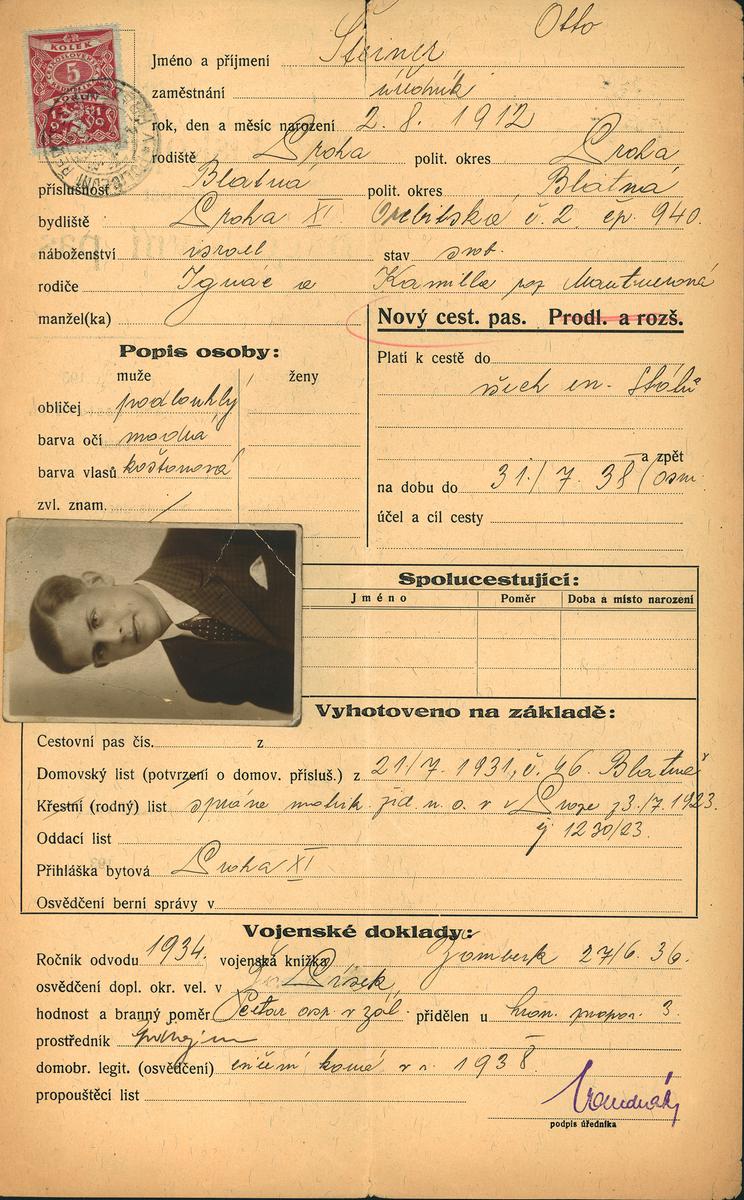 KOLEK
5
KORUN
Jméno a příjmení Steiner Otto
zaměstnání úředník
rok, den a měsíc narození 2. 8. 1912
rodiště Praha polit. okres Praha
příslušnost Blatná polit. okres Blatná
bydliště Praha XI Orebitská č. 2. čp. 940.
náboženství israel stav svob.
rodiče Ignác a Kamilla roz Mautnerová
manžel(ka)
Nový cest. pas. Prodl. a rozš.
Popis osoby:
muže ženy
obličej podlouhlý
barva očí modrá
barva vlasů kaštanová
zvl. znam.
Platí k cestě do
všech ev. států
a zpět
na dobu do 31./7. 38 (osm
účel a cíl cesty
Spolucestující:
Jméno Poměr Doba a místo narození
Vyhotoveno na základě:
Cestovní pas čís. z
Domovský list (potvrzení o domov. přísluš.) z 21/7. 1931, č. 46. Blatná
Křestní (rodný) list správa matrik žid. n. o. v Praze z 3./7. 1923.
Oddací list čj 1230/23.
Přihláška bytová Praha XI
Osvědčení berní správy v
Vojenské doklady:
Ročník odvodu 1934. vojenská knížka Žamberk 27/6. 36.
osvědčení dopl. okr. vel. v Písek
hodnost a branný poměr četař asp. v zál. přidělen u hran. prapor. 3.
prostředník
domobr. legit. (osvědčení) v r. 1938
propouštěcí list
podpis úředníka